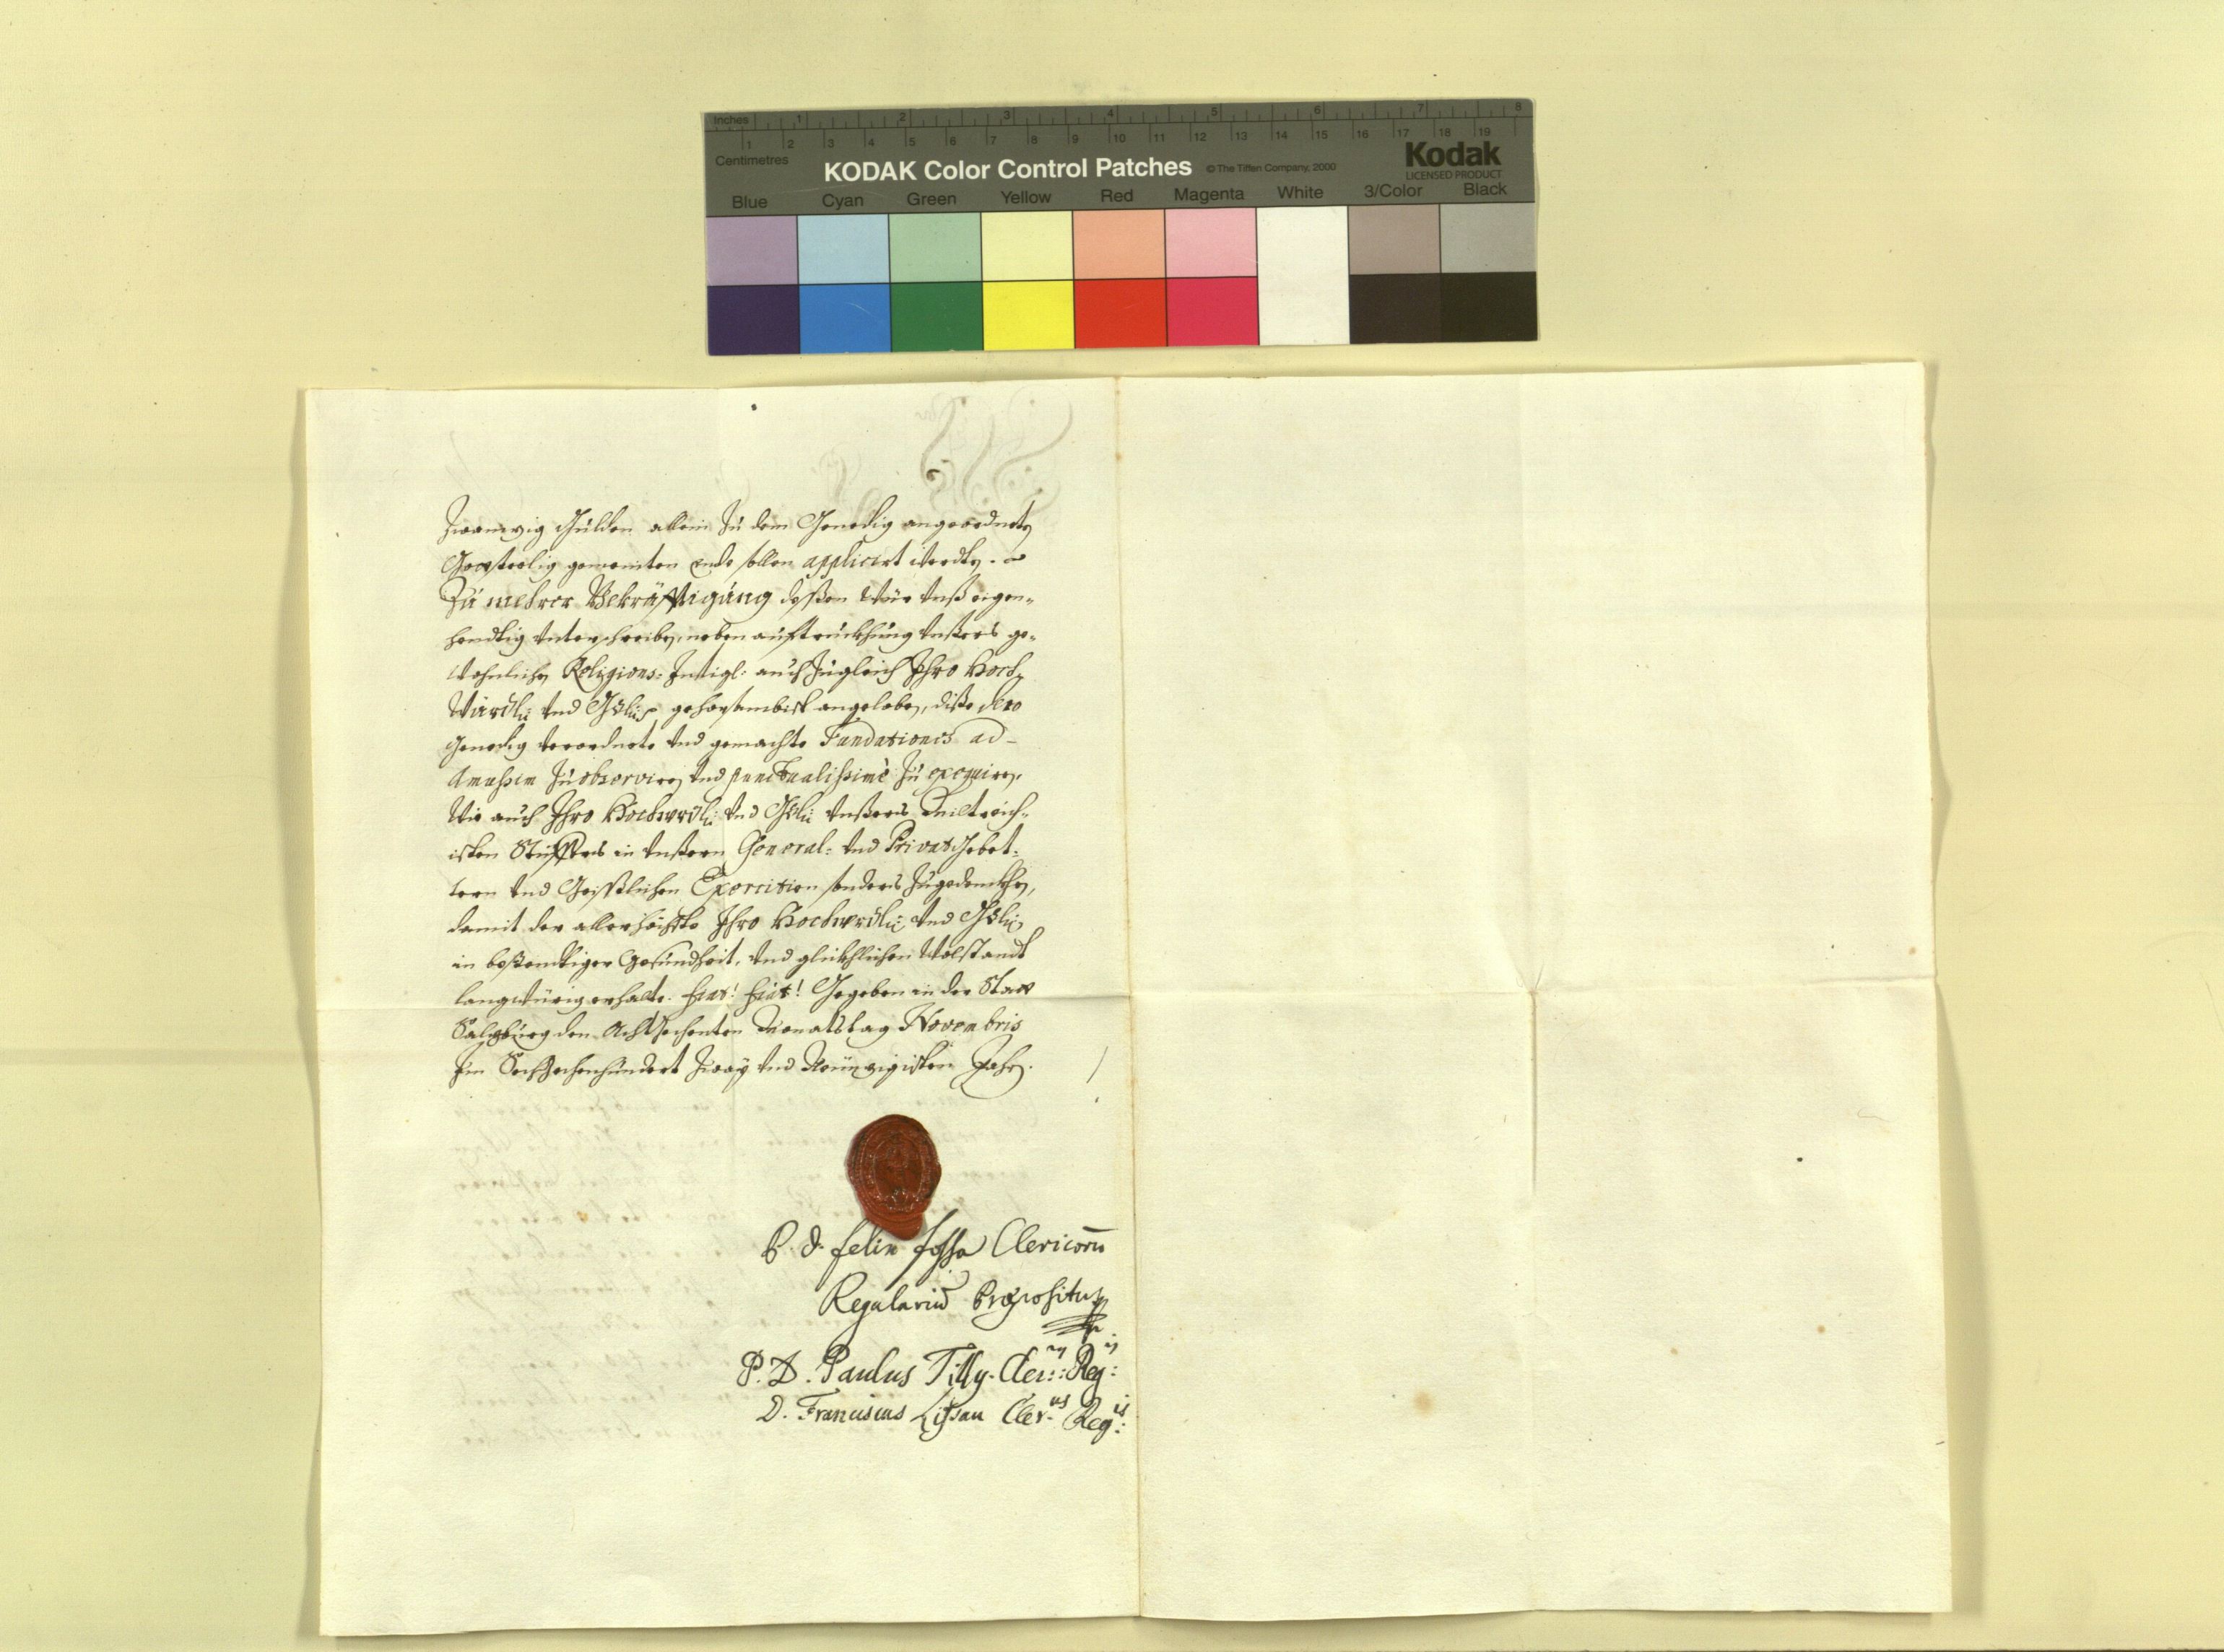 Inches 1 2 3 4 5 6 7 8
1 2 3 4 5 6 7 8 9 10 11 12 13 14 15 16 17 18 19
Centimetres
KODAK Color Control Patches © The Tiffen Company, 2000 Kodak
LICENSED PRODUCT
Blue Cyan Green Yellow Red Magenta White 3/Color Black
Zwanzig Gulden allein Zu dem Genedig angeordnete
gemeinten ende sollen applicirt werdte.
Zu mehrer Bekräfftigung dessen Wür Unß eigen-
hendtig Unterschreiben, neben auftruckhung Unsers ge-
wohnlichen Religions: Insigl: auch Zugleich Ihro Hoch-
Würdl: Und Gdl: gehorsambist angeloben, diße dero
Genedig Verordnete Und gemachte Fundationes ad
Amussim Zu observiren Und punctualissimè Zu exequiren,
Wie auch Ihro Hochwrdl: Und Gdl: Unsers Miltreich-
isten Stüffters in Unsern General: Und Privat Gebet-
tern Und Geistlichen Exercitien sonders Zugedenckhen,
damit der allerhöchste Ihro Hochwrdl: Und Gdl:
in bestendtiger Gesundheit, Und glückhlichen Wolstandt
langwürig erhalte. fiat! fiat! Gegeben in der Statt
Salzburg den Achtzechenten Monatstag Novembris
Im Sechzechenhundert Zway Und Neunzigisten Jahr.
P. D. Felix Fossa Clericorū
Regulariū Præpositus
P. D. Paulus Tilly. Cler: Reg:
D. Franciscus Lissau Cler.us Regis: